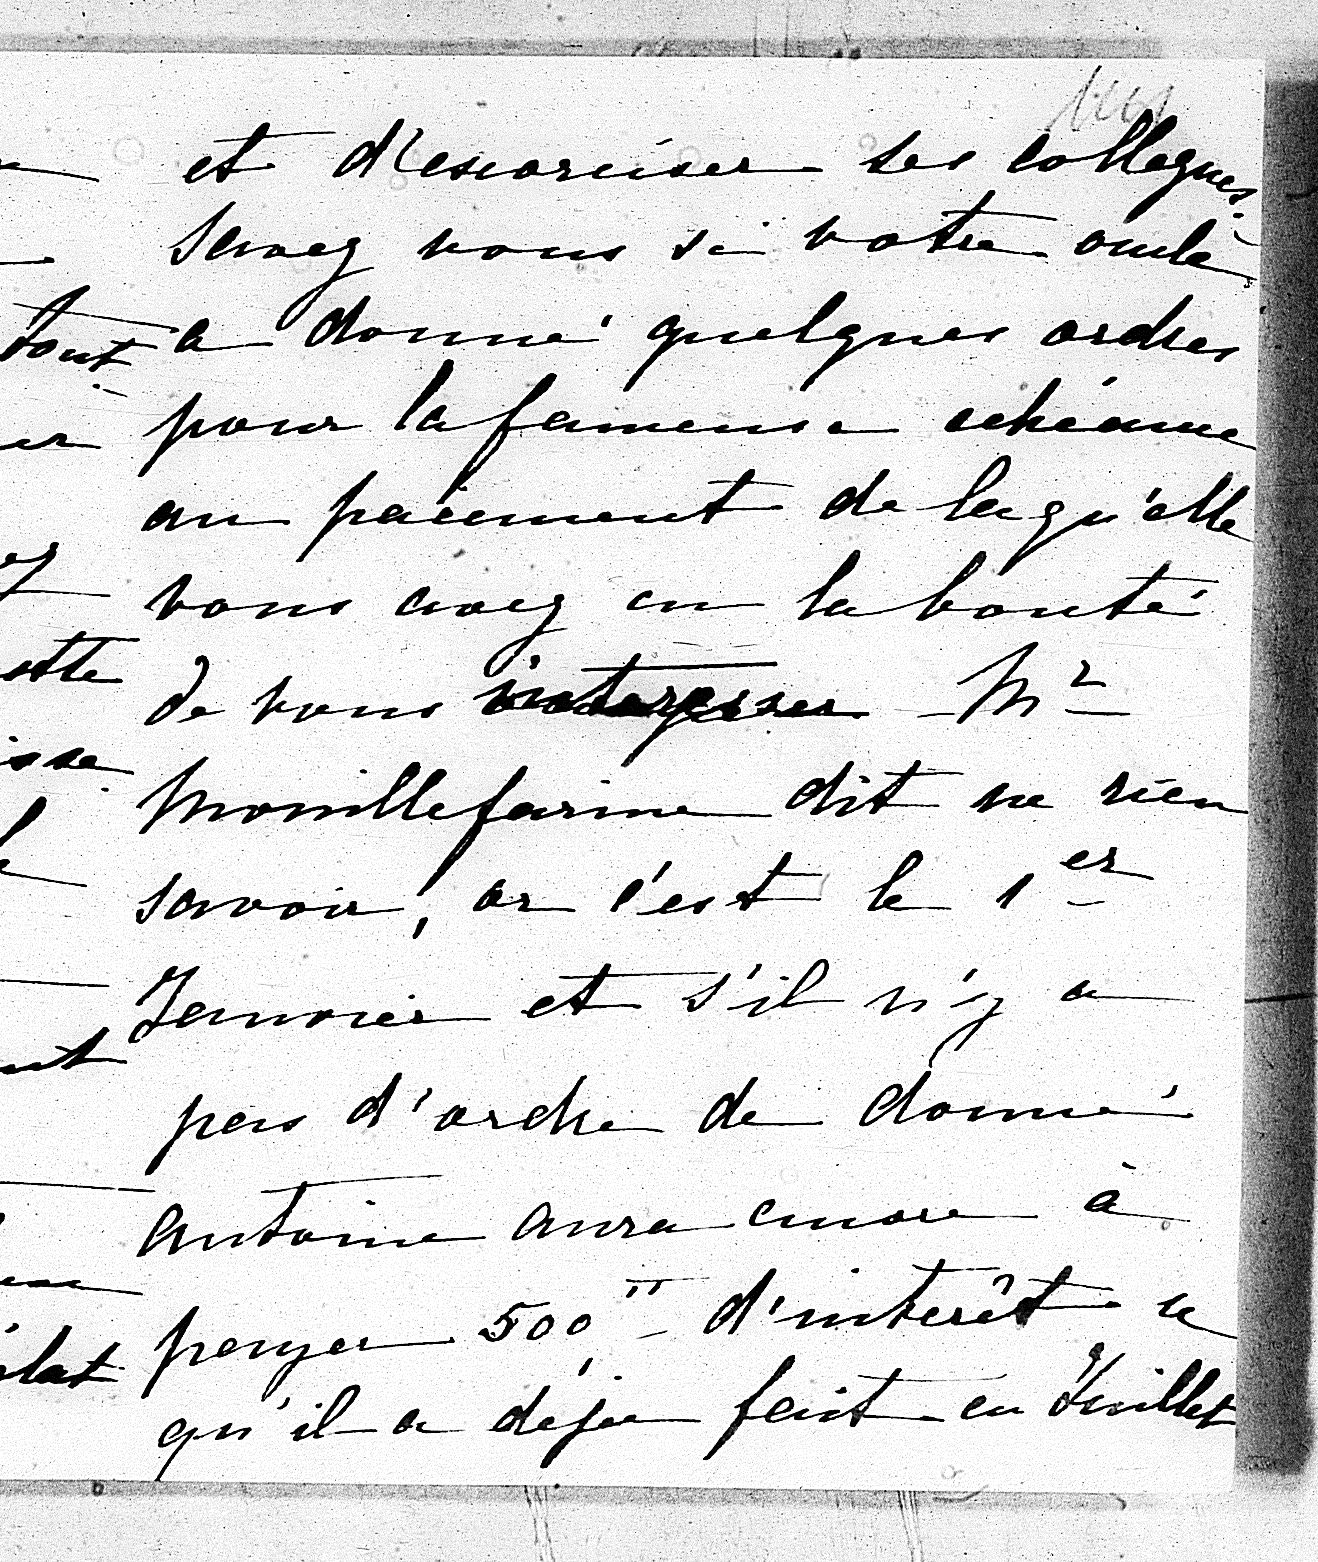 et d'exorciser ses collègues.
Savez vous si votre oncle
a donné quelques ordres
pour la fameuse echéance
au paiement de laqu'elle
vous avez eu la bonté
de vous intéresser – Mr
Mouillefarine dit ne rien
savoir, or c'est le 1er
Janvier et s'il n'y a
pas d'ordre de donné
Antoine aura encore à
payer 500" d'interêt ce
qu'il a déja fait en Juillet